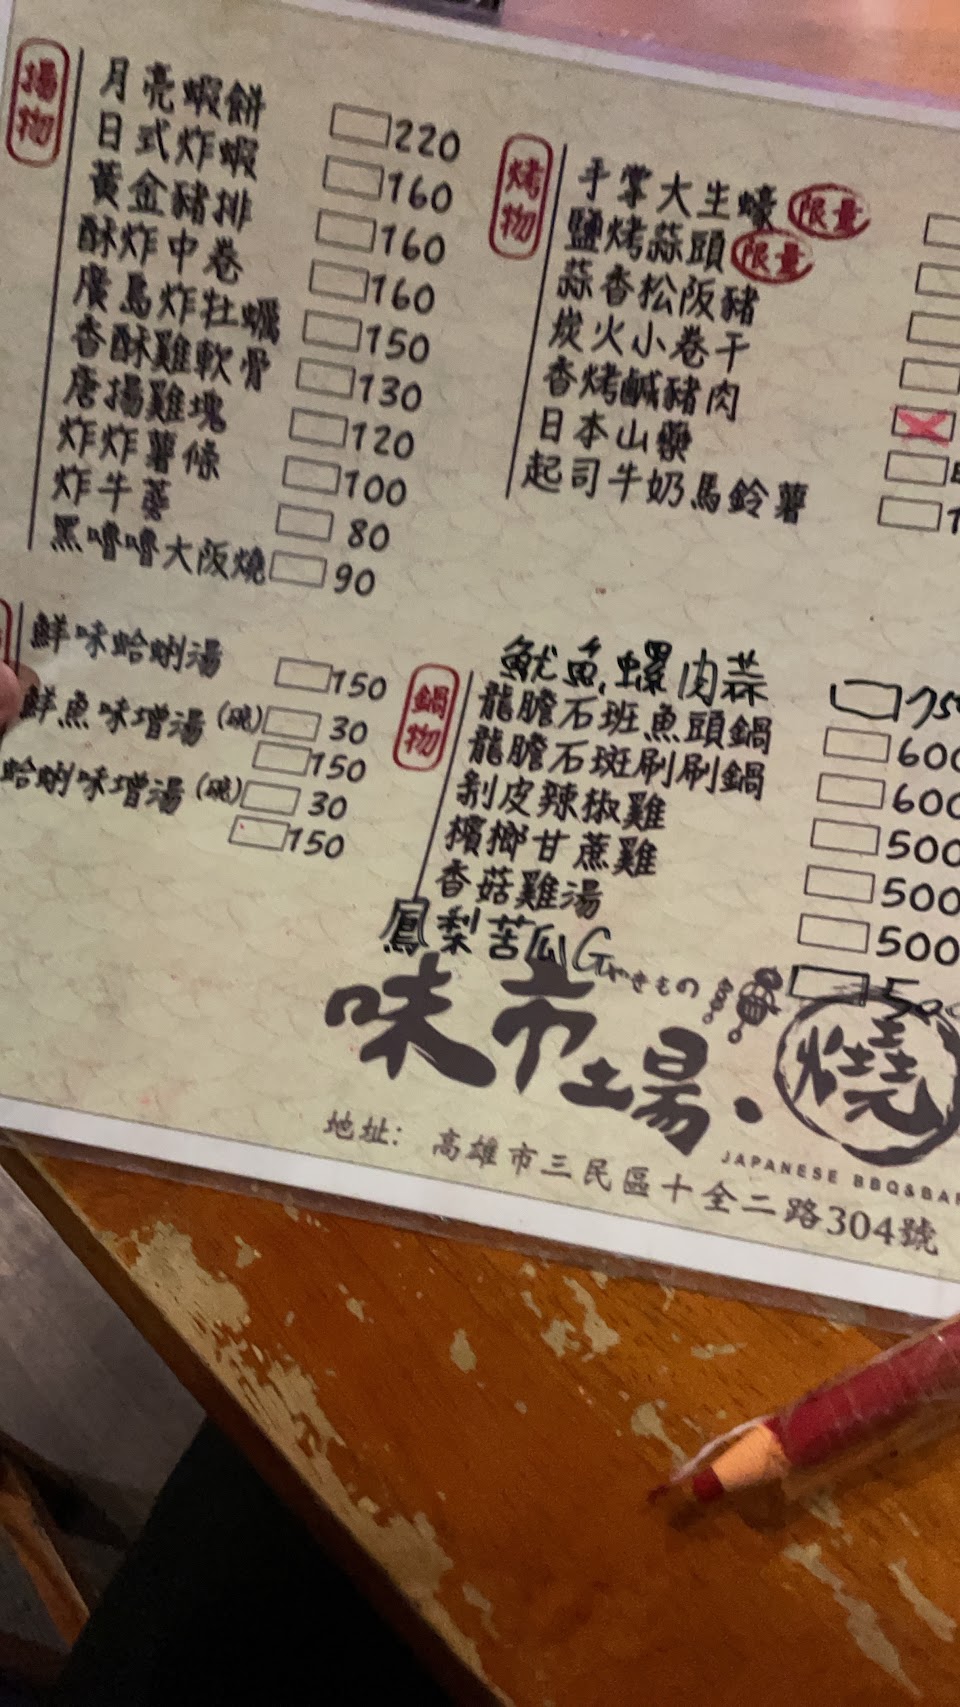 揚物
月亮蝦餅 220
日式炸蝦 160
黃金豬排 160
酥炸中卷 160
廣島炸牡蠣 150
香酥雞軟骨 130
唐揚雞塊 120
炸炸薯條 100
炸牛蒡 80
黑嚕嚕大阪燒 90
烤物
手掌大生蠔 限量
鹽烤蒜頭 限量
蒜香松阪豬
炭火小卷干
香烤鹹豬肉
日本山藥
起司牛奶馬鈴薯
鮮味蛤蜊湯 150
鮮魚味增湯 (碗) 30
150
蛤蜊味增湯 (碗) 30
150
鍋物
魷魚螺肉蒜
龍膽石班魚頭鍋 600
龍膽石斑刷刷鍋 600
剝皮辣椒雞 500
檳榔甘蔗雞 500
香菇雞湯 500
鳳梨苦瓜G
やきもの
味市場・燒
JAPANESE BBQ&BAR
地址: 高雄市三民區十全二路304號